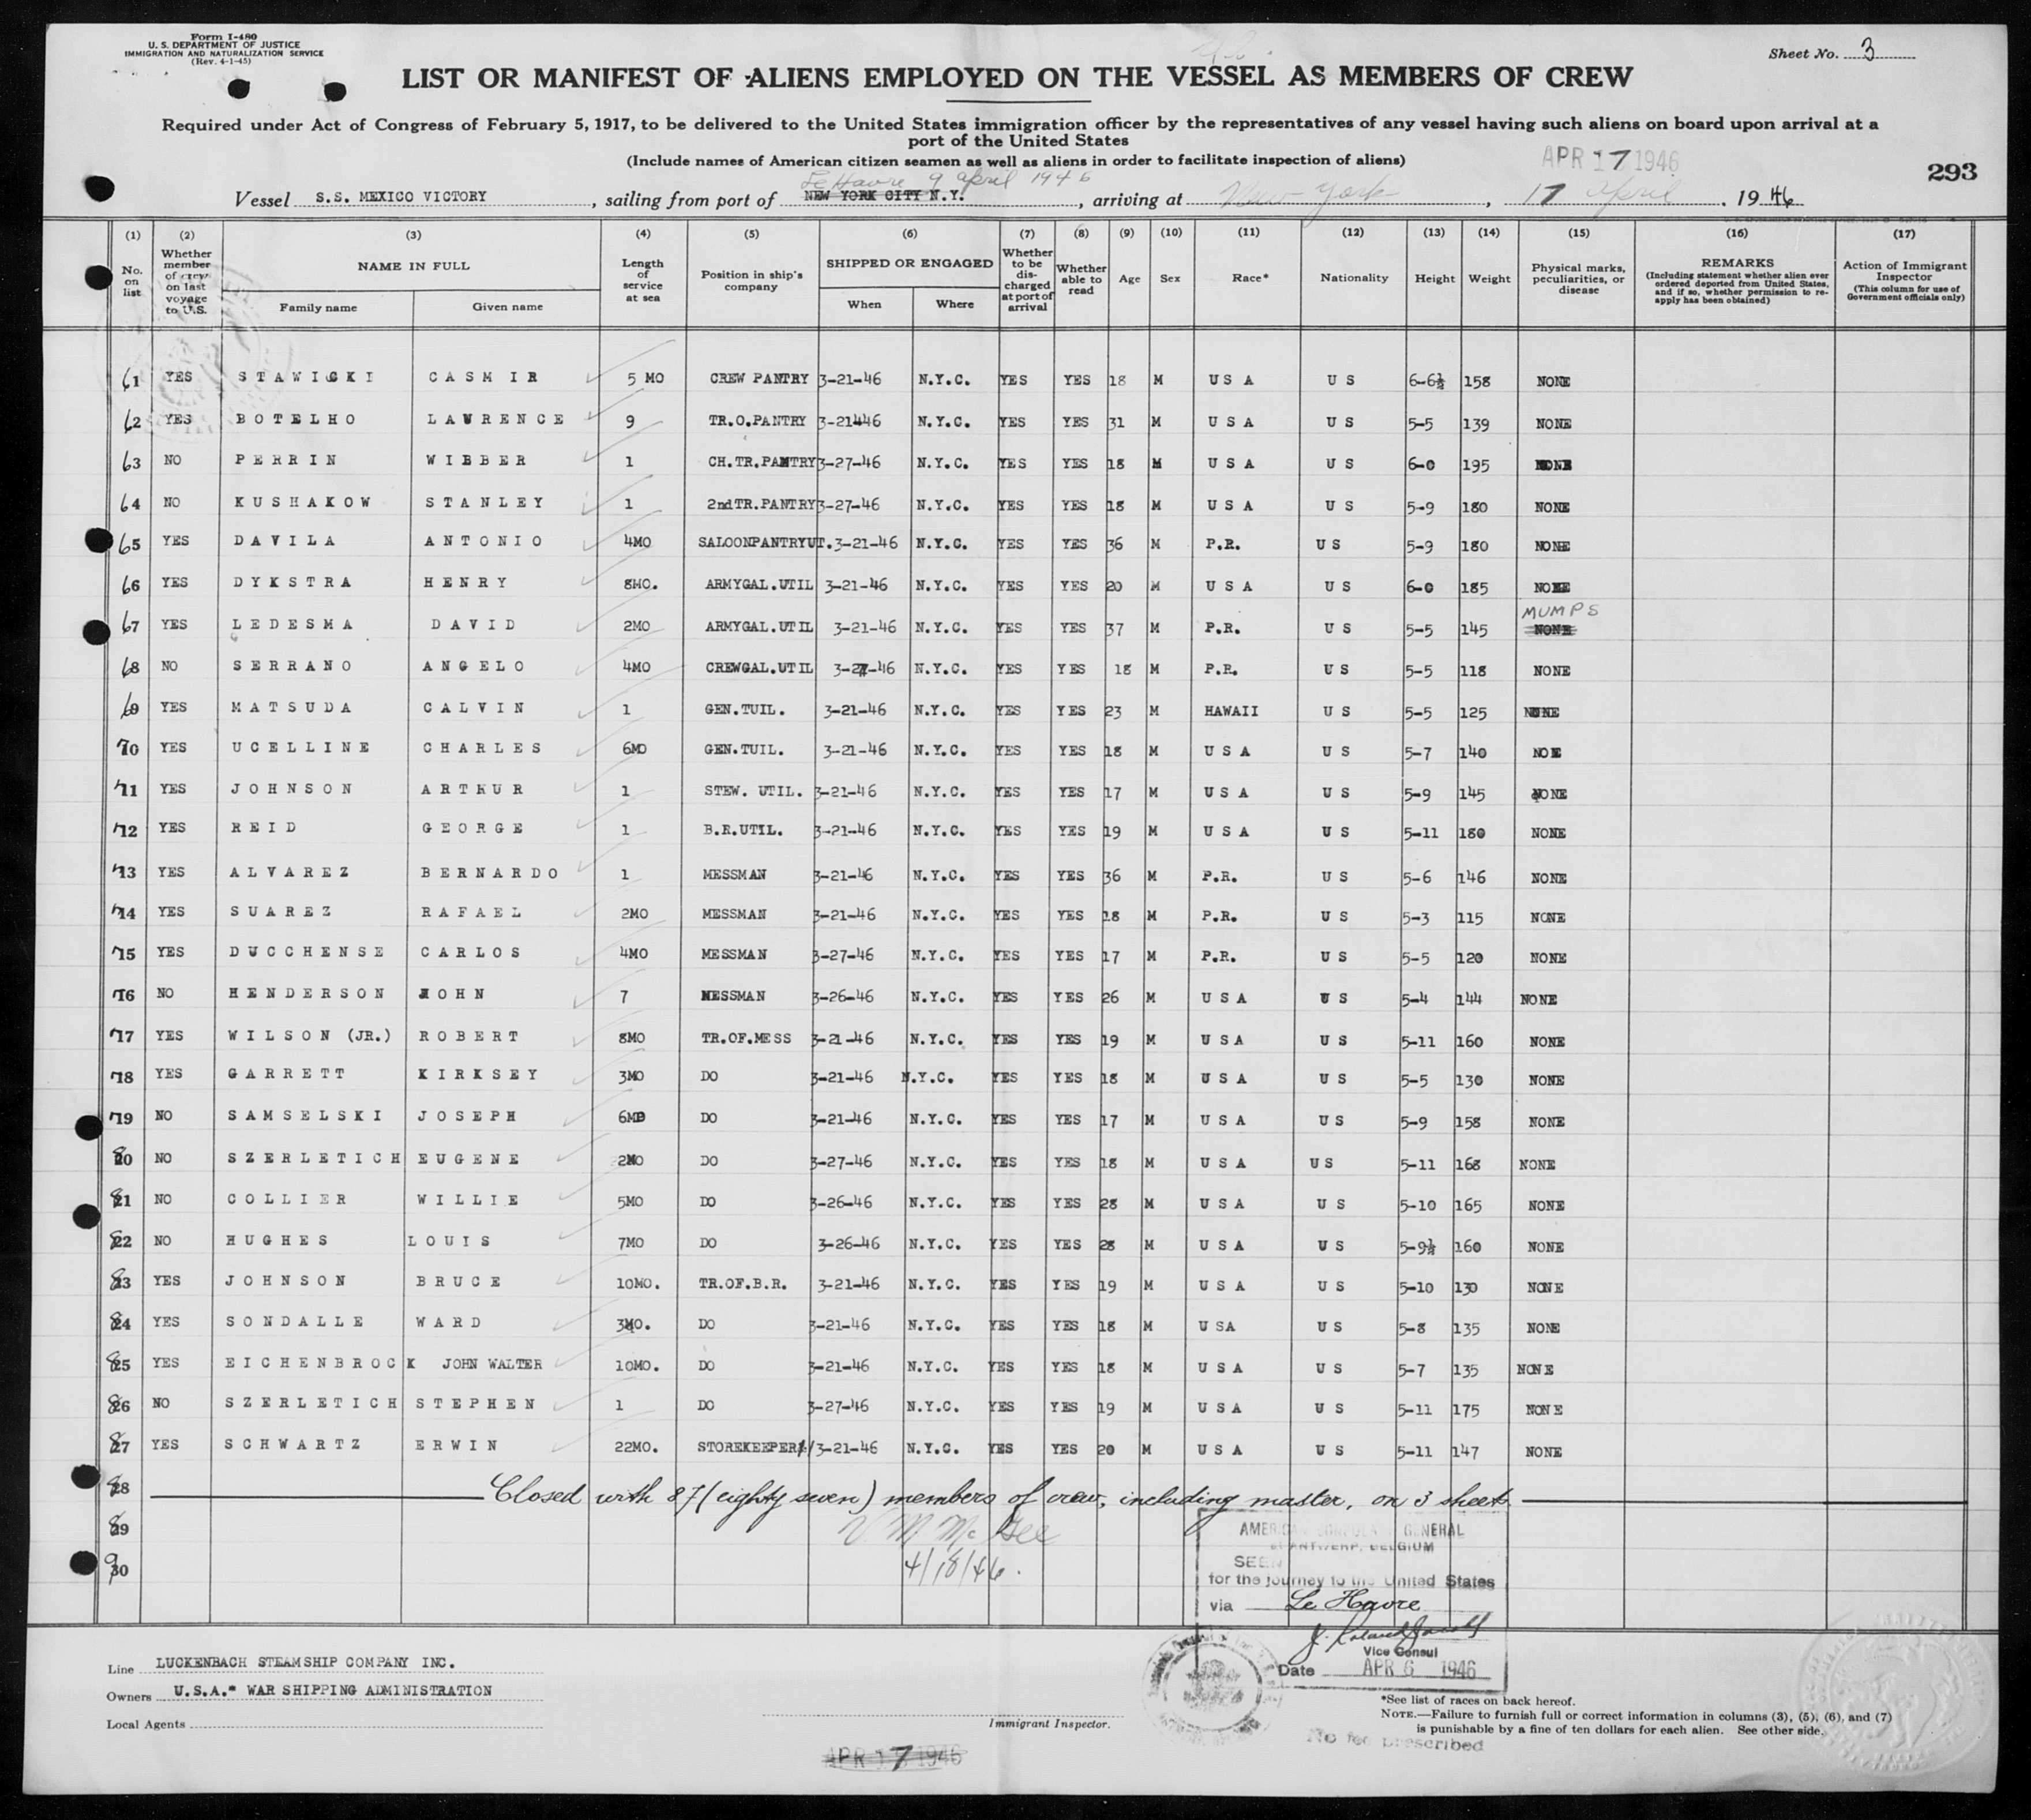 Form I-480
U. S. DEPARTMENT OF JUSTICE
IMMIGRATION AND NATURALIZATION SERVICE
(Rev. 4-1-45)
Sheet No. 3
LIST OR MANIFEST OF ALIENS EMPLOYED ON THE VESSEL AS MEMBERS OF CREW
Required under Act of Congress of February 5, 1917, to be delivered to the United States immigration officer by the representatives of any vessel having such aliens on board upon arrival at a
port of the United States
(Include names of American citizen seamen as well as aliens in order to facilitate inspection of aliens)
APR 17 1946
293
Le Havre 9 april 1946
Vessel S.S. MEXICO VICTORY, sailing from port of NEW YORK CITY N.Y., arriving at New York, 17 april, 1946
(1) (2) (3) (4) (5) (6) (7) (8) (9) (10) (11) (12) (13) (14) (15) (16) (17)
No. on list
Whether member of crew on last voyage to U.S.
NAME IN FULL
Family name
Given name
Length of service at sea
Position in ship's company
SHIPPED OR ENGAGED
When
Where
Whether to be discharged at port of arrival
Whether able to read
Age
Sex
Race*
Nationality
Height
Weight
Physical marks, peculiarities, or disease
REMARKS
(Including statement whether alien ever ordered deported from United States, and if so, whether permission to reapply has been obtained)
Action of Immigrant Inspector
(This column for use of Government officials only)
61 YES STAWICKI CASMIR 5 MO CREW PANTRY 3-21-46 N.Y.C. YES YES 18 M USA US 6-6½ 158 NONE
62 YES BOTELHO LAWRENCE 9 TR.O.PANTRY 3-21446 N.Y.C. YES YES 31 M USA US 5-5 139 NONE
63 NO PERRIN WIBBER 1 CH.TR.PANTRY 3-27-46 N.Y.C. YES YES 18 M USA US 6-0 195 NONE
64 NO KUSHAKOW STANLEY 1 2nd TR.PANTRY 3-27-46 N.Y.C. YES YES 18 M USA US 5-9 180 NONE
65 YES DAVILA ANTONIO 4MO SALOONPANTRYUT. 3-21-46 N.Y.C. YES YES 36 M P.R. US 5-9 180 NONE
66 YES DYKSTRA HENRY 8MO. ARMYGAL.UTIL 3-21-46 N.Y.C. YES YES 20 M USA US 6-0 185 NONE
67 YES LEDESMA DAVID 2MO ARMYGAL.UTIL 3-21-46 N.Y.C. YES YES 37 M P.R. US 5-5 145 MUMPS NONE
68 NO SERRANO ANGELO 4MO CREWGAL.UTIL 3-27-46 N.Y.C. YES YES 18 M P.R. US 5-5 118 NONE
69 YES MATSUDA CALVIN 1 GEN.TUIL. 3-21-46 N.Y.C. YES YES 23 M HAWAII US 5-5 125 NONE
70 YES UCELLINE CHARLES 6MO GEN.TUIL. 3-21-46 N.Y.C. YES YES 18 M USA US 5-7 140 NONE
71 YES JOHNSON ARTHUR 1 STEW. UTIL. 3-21-46 N.Y.C. YES YES 17 M USA US 5-9 145 NONE
72 YES REID GEORGE 1 B.R.UTIL. 3-21-46 N.Y.C. YES YES 19 M USA US 5-11 180 NONE
73 YES ALVAREZ BERNARDO 1 MESSMAN 3-21-46 N.Y.C. YES YES 36 M P.R. US 5-6 146 NONE
74 YES SUAREZ RAFAEL 2MO MESSMAN 3-21-46 N.Y.C. YES YES 18 M P.R. US 5-3 115 NONE
75 YES DUCCHENSE CARLOS 4MO MESSMAN 3-27-46 N.Y.C. YES YES 17 M P.R. US 5-5 120 NONE
76 NO HENDERSON JOHN 7 MESSMAN 3-26-46 N.Y.C. YES YES 26 M USA US 5-4 144 NONE
77 YES WILSON (JR.) ROBERT 8MO TR.OF.MESS 3-21-46 N.Y.C. YES YES 19 M USA US 5-11 160 NONE
78 YES GARRETT KIRKSEY 3MO DO 3-21-46 N.Y.C. YES YES 18 M USA US 5-5 130 NONE
79 NO SAMSELSKI JOSEPH 6MO DO 3-21-46 N.Y.C. YES YES 17 M USA US 5-9 158 NONE
80 NO SZERLETICH EUGENE 2MO DO 3-27-46 N.Y.C. YES YES 18 M USA US 5-11 168 NONE
81 NO COLLIER WILLIE 5MO DO 3-26-46 N.Y.C. YES YES 28 M USA US 5-10 165 NONE
82 NO HUGHES LOUIS 7MO DO 3-26-46 N.Y.C. YES YES 28 M USA US 5-9½ 160 NONE
83 YES JOHNSON BRUCE 10MO. TR.OF.B.R. 3-21-46 N.Y.C. YES YES 19 M USA US 5-10 130 NONE
84 YES SONDALLE WARD 3MO. DO 3-21-46 N.Y.C. YES YES 18 M USA US 5-8 135 NONE
85 YES EICHENBROCK JOHN WALTER 10MO. DO 3-21-46 N.Y.C. YES YES 18 M USA US 5-7 135 NONE
86 NO SZERLETICH STEPHEN 1 DO 3-27-46 N.Y.C. YES YES 19 M USA US 5-11 175 NONE
87 YES SCHWARTZ ERWIN 22MO. STOREKEEPER 3-21-46 N.Y.C. YES YES 20 M USA US 5-11 147 NONE
88 Closed with 87 (eighty seven) members of crew, including master, on 3 sheets
89 V M McGee
90 4/18/46.
AMERICAN CONSULATE GENERAL
at ANTWERP, BELGIUM
SEEN
for the journey to the United States
via Le Havre
Vice Consul
Date APR 6 1946
Line LUCKENBACH STEAMSHIP COMPANY INC.
Owners U.S.A.* WAR SHIPPING ADMINISTRATION
Local Agents
Immigrant Inspector.
*See list of races on back hereof.
NOTE.—Failure to furnish full or correct information in columns (3), (5), (6), and (7)
is punishable by a fine of ten dollars for each alien. See other side.
No fee prescribed
APR 17 1946